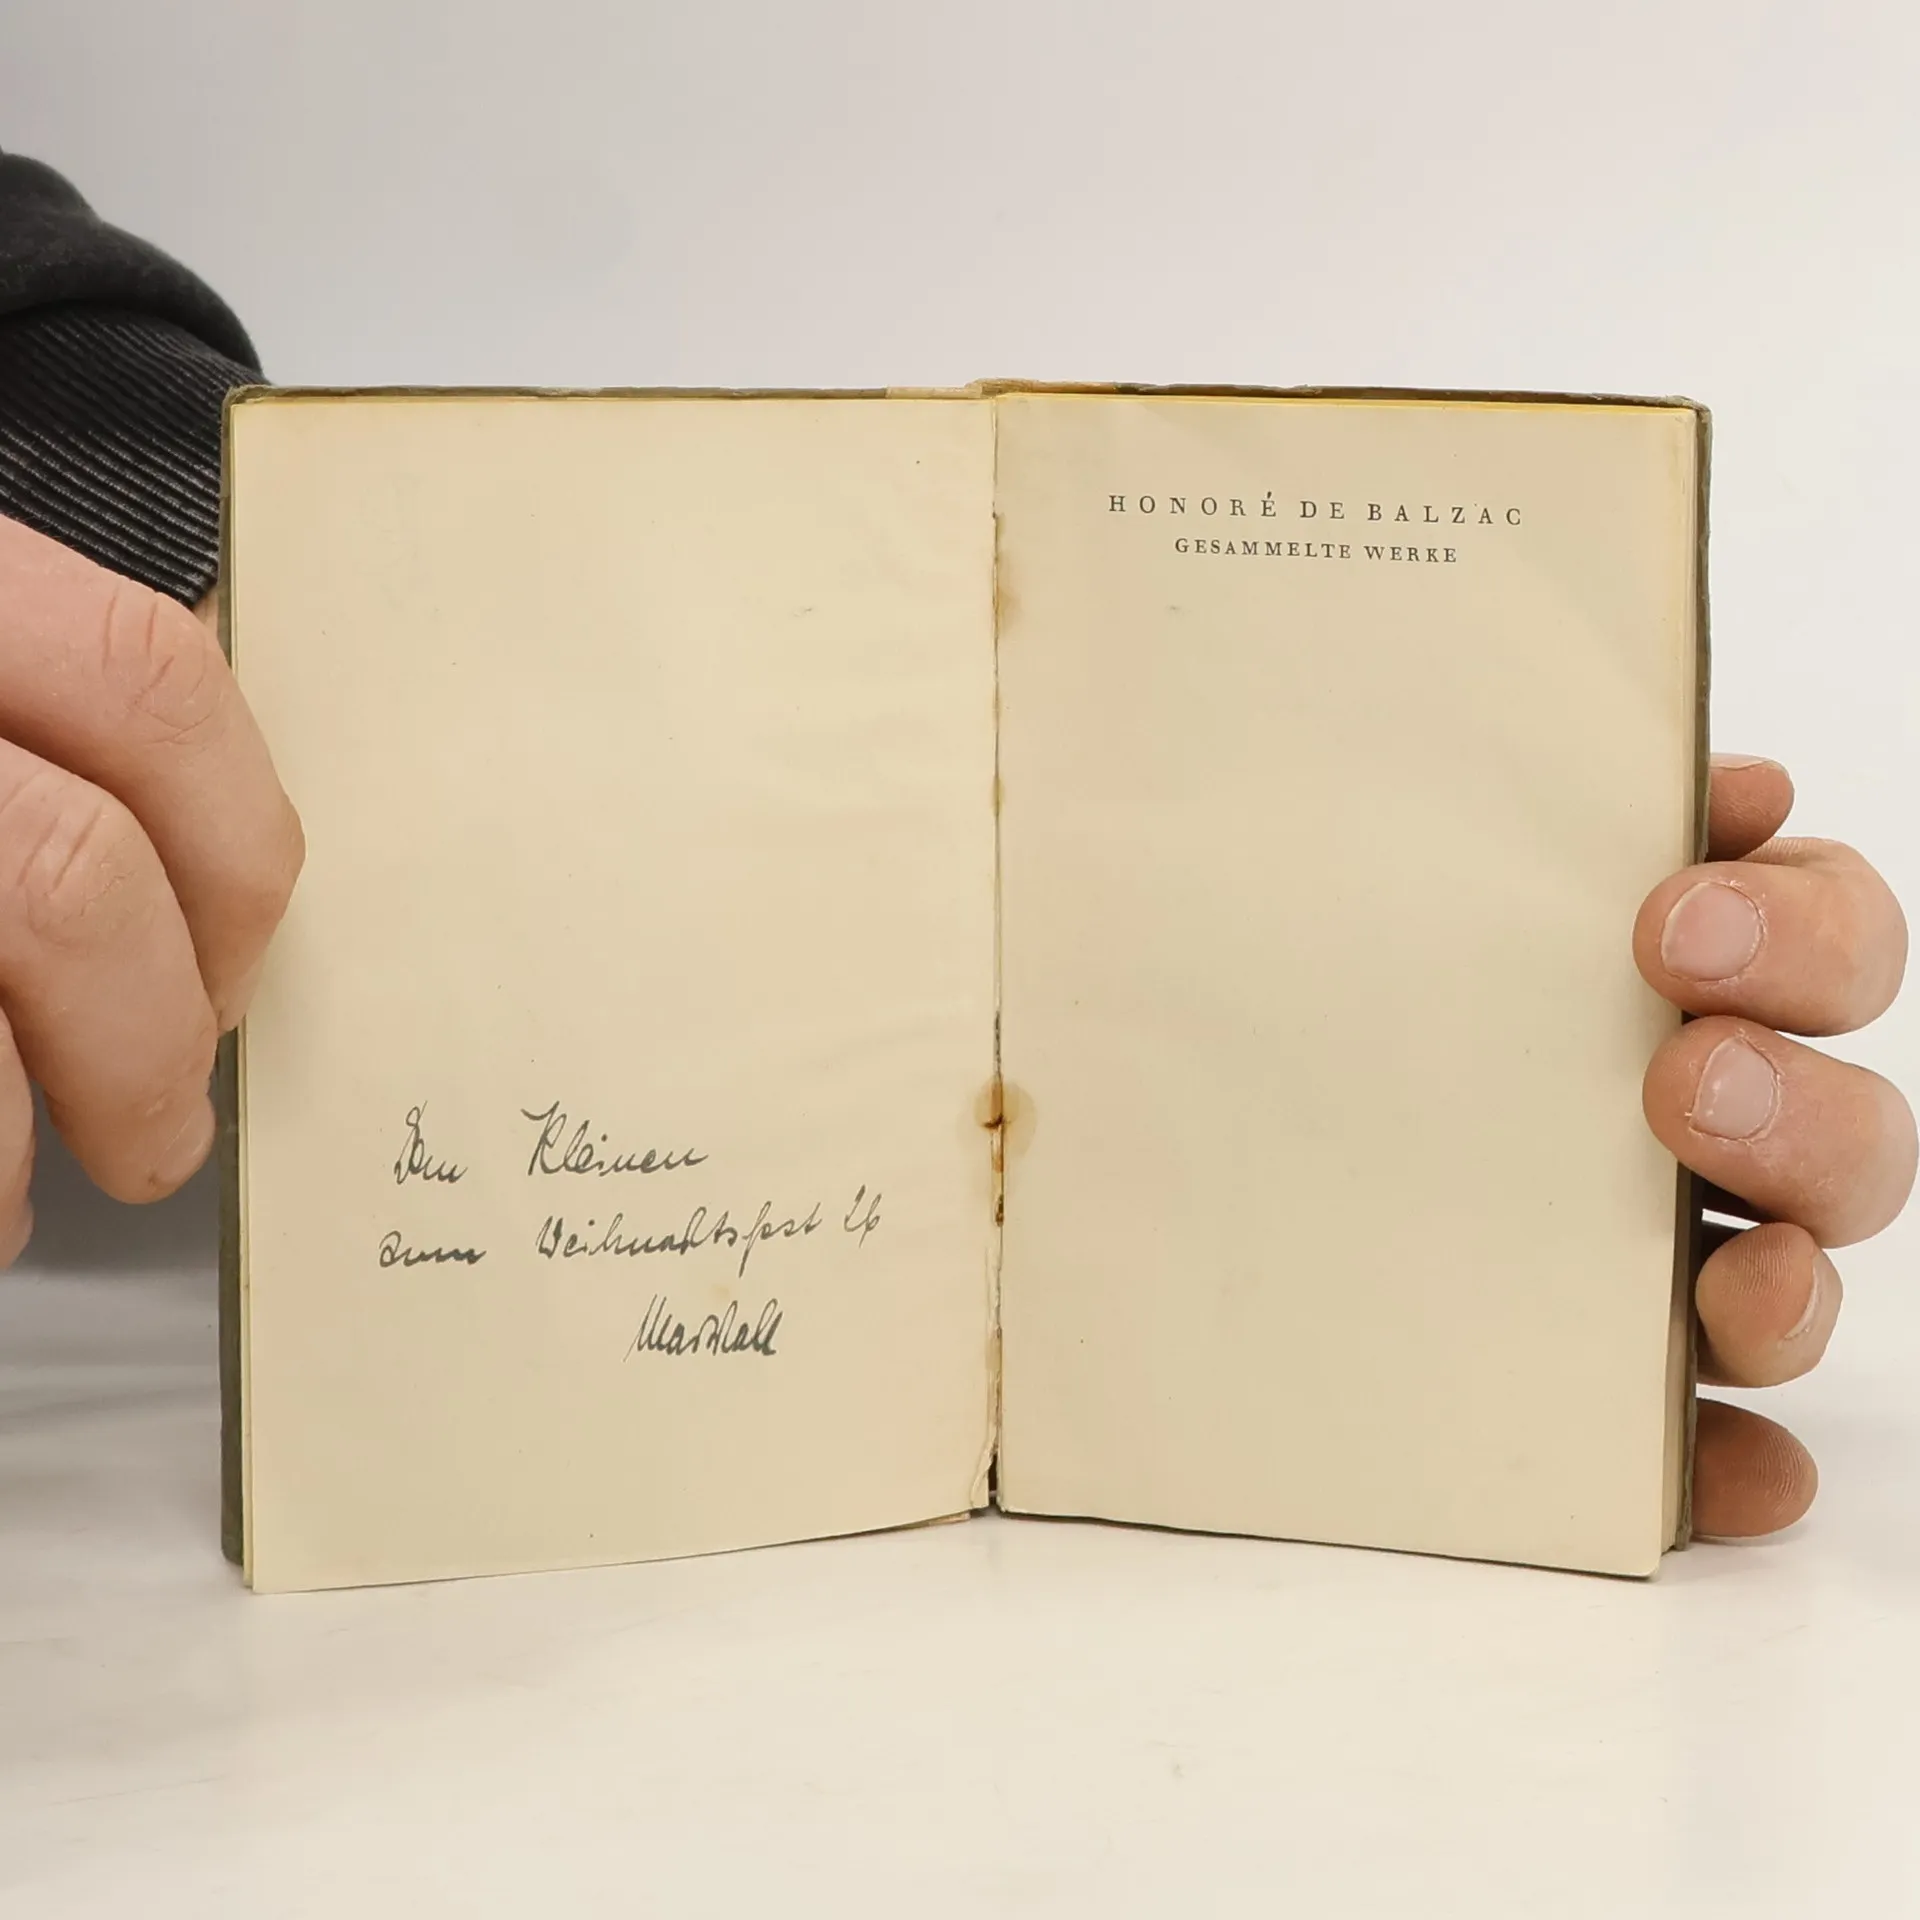 Dem Kleinen
zum Weihnachtsfest 26
HONORÉ DE BALZAC
GESAMMELTE WERKE